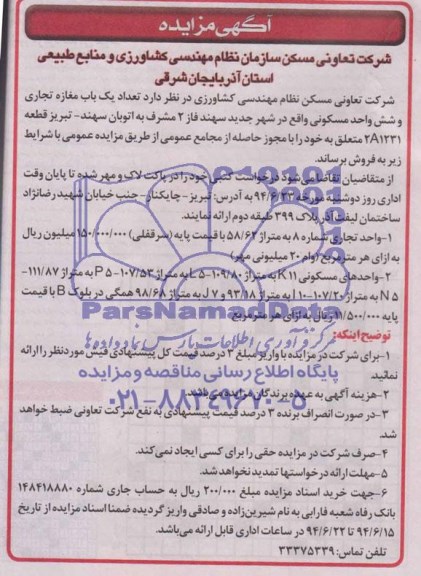 آگهی مزایده
شرکت تعاونی مسکن سازمان نظام مهندسی کشاورزی و منابع طبیعی
استان آذربایجان شرقی
شرکت تعاونی مسکن نظام مهندسی کشاورزی در نظر دارد تعداد یک باب مغازه تجاری
و شش واحد مسکونی واقع در شهر جدید سهند فاز ۲ مشرف به اتوبان سهند- تبریز قطعه
۲A۱۲۳۱ متعلق به خود را با مجوز حاصله از مجامع عمومی از طریق مزایده عمومی با شرایط
زیر به فروش برساند.
از متقاضیان تقاضا می‌شود درخواست کتبی خود را در پاکت لاک و مهر شده تا پایان وقت
اداری روز دوشنبه مورخه ۹۴/۶/۲۳ به آدرس: تبریز- چایکنار- جنب خیابان شهید رضانژاد
ساختمان لیفت آذر پلاک ۳۹۹ طبقه دوم ارائه نمایند.
۱-واحد تجاری شماره ۸ به متراژ ۵۸/۶۲ با قیمت پایه (سرقفلی) ۱۵۰/۰۰۰/۰۰۰ میلیون ریال
به ازای هر مترمربع (وام ۲۰ میلیونی مهر)
۲-واحدهای مسکونی K۱۱ به متراژ ۱۰۹/۸۰-L۵ به متراژ ۱۰۷/۵۳-P۵ ۱۱۱/۸۷-
N۵ به متراژ ۱۰۷/۲۰-I۱۰ به متراژ ۹۳/۱۸ و J۷ به متراژ ۹۸/۶۸ همگی در بلوک B با قیمت
پایه ۱۱/۵۰۰/۰۰۰ ریال به ازای هر مترمربع
توضیح اینکه:
۱-برای شرکت در مزایده با واریز مبلغ ۳ درصد قیمت کل پیشنهادی فیش موردنظر را ارائه
نمائید.
۲-هزینه آگهی به عهده برندگان مزایده می‌باشد.
۳-در صورت انصراف برنده ۳ درصد قیمت پیشنهادی به نفع شرکت تعاونی ضبط خواهد
شد.
۴-صرف شرکت در مزایده حقی را برای کسی ایجاد نمی‌کند.
۵-مهلت ارائه درخواستها تمدید نخواهد شد.
۶-جهت خرید اسناد مزایده مبلغ ۲۰۰/۰۰۰ ریال به حساب جاری شماره ۱۴۸۴۱۸۸۸۰
بانک رفاه شعبه فارابی به نام شیرین‌زاده و صادقی واریز گردیده ضمنا اسناد مزایده از تاریخ
۹۴/۶/۱۵ تا ۹۴/۶/۲۲ در ساعات اداری قابل ارائه می‌باشد.
تلفن تماس: ۳۳۳۷۵۳۳۹
ParsNamadData
گردآوری اطلاعات پارس نماد داده ها
پایگاه اطلاع رسانی مناقصه و مزایده
۰۲۱-۸۸۳۴۹۶۷۰-۵